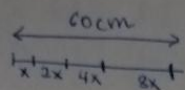 60cm
x 2x 4x 8x